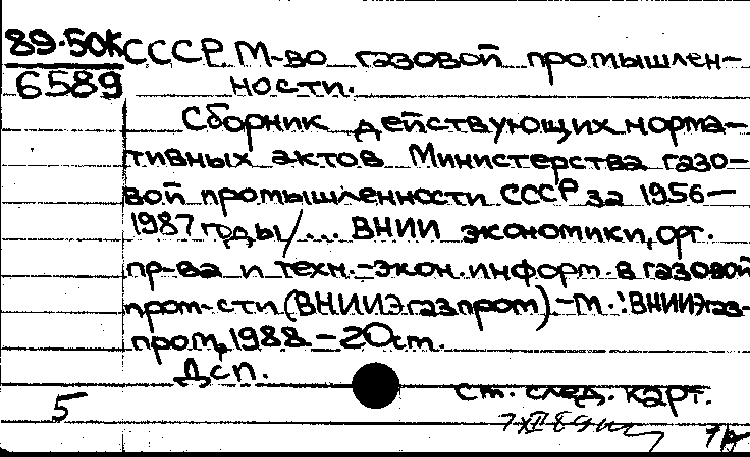 89-50К
6589
СССР. М-во газовой промышлен-
ности.
Сборник действующих норма-
тивных актов Министерства газо-
вой промышленности СССР за 1956-
1987 годы/... ВНИИ экономики, орг.
пр-ва и техн.-экон. информ. в газовой
пром-сти (ВНИИЭгазпром) - М.: ВНИИЭгаз-
пром, 1988. - 20 cm.
Дсп.
5
Ст. след. карт.
7 XII 89